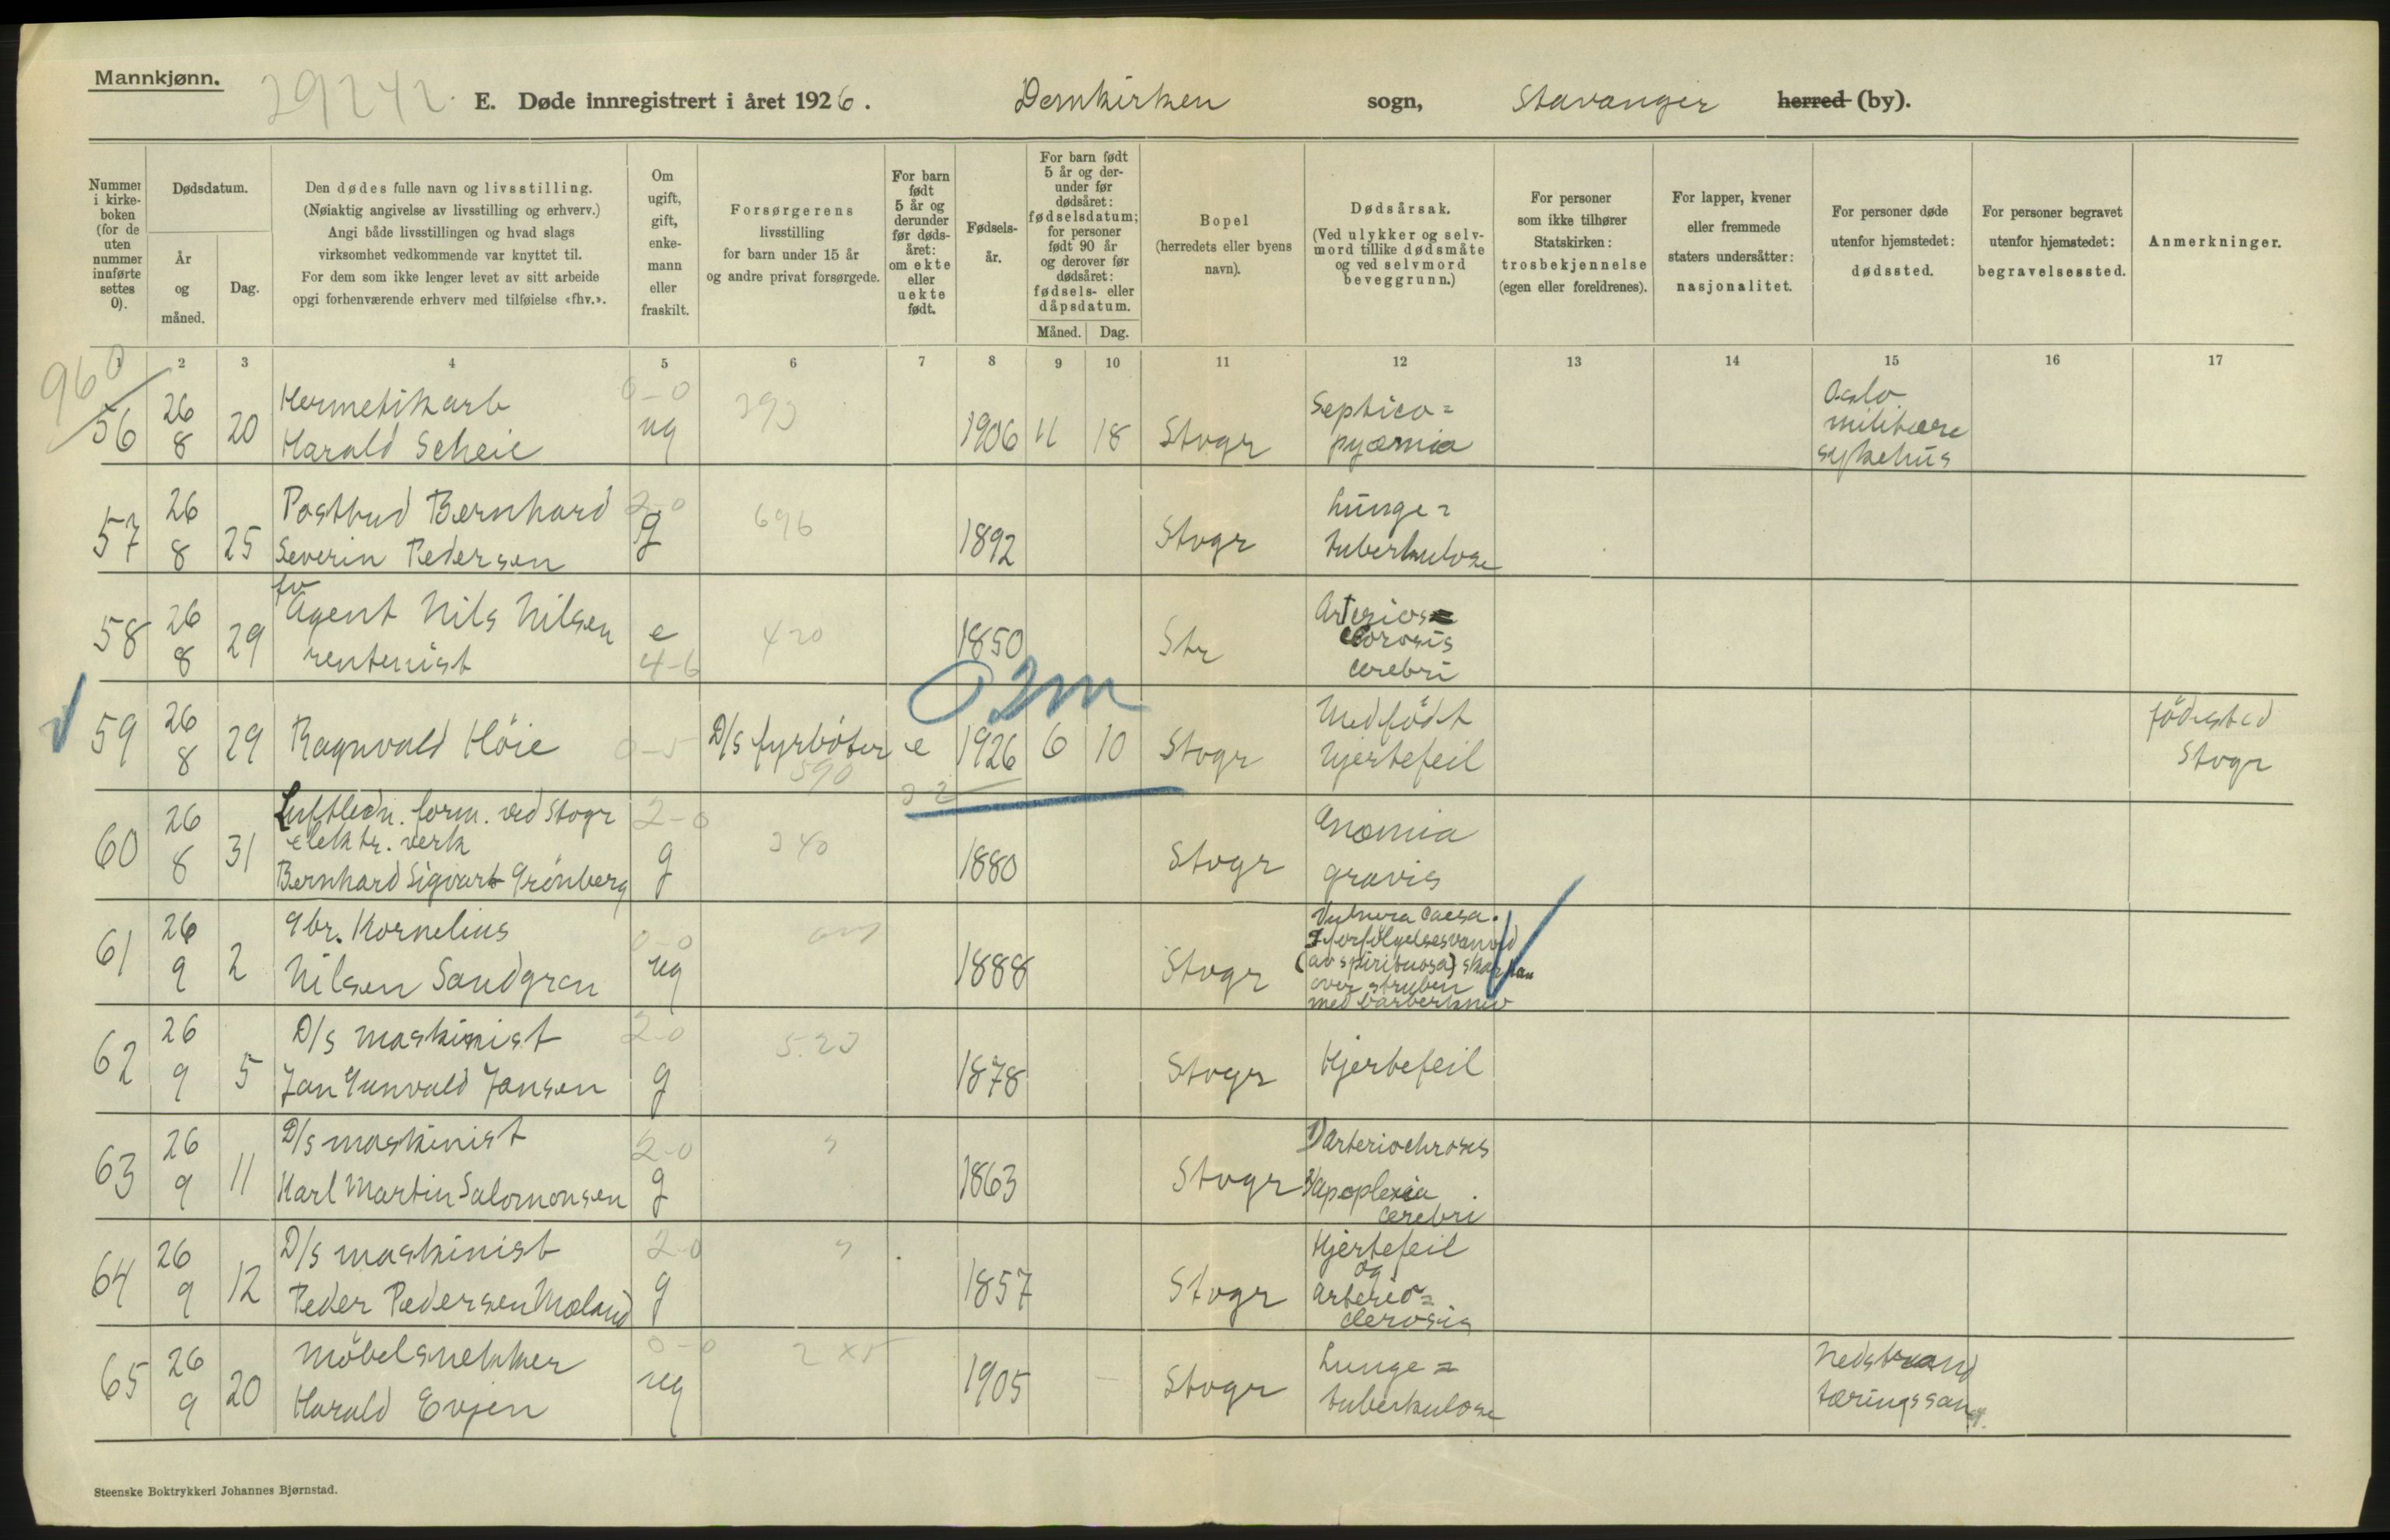 Mannkjønn.
29242.
E. Døde innregistrert i året 1926.
Domkirken sogn, Stavanger herred (by).
Nummer i kirkeboken (for de uten nummer innførte settes 0).
Dødsdatum.
År og måned.
Dag.
Den dødes fulle navn og livsstilling.
(Nøiaktig angivelse av livsstilling og erhverv.)
Angi både livsstillingen og hvad slags
virksomhet vedkommende var knyttet til.
For dem som ikke lenger levet av sitt arbeide
opgi forhenværende erhverv med tilføielse «fhv.».
Om ugift, gift, enkemann eller fraskilt.
Forsørgerens
livsstilling
for barn under 15 år
og andre privat forsørgede.
For barn født 5 år og derunder før dødsåret: om ekte eller uekte født.
Fødselsår.
For barn født 5 år og derunder før dødsåret: fødselsdatum; for personer født 90 år og derover før dødsåret: fødsels- eller dåpsdatum.
Måned. Dag.
Bopel
(herredets eller byens
navn).
Dødsårsak.
(Ved ulykker og selvmord tillike dødsmåte og ved selvmord beveggrunn.)
For personer
som ikke tilhører
Statskirken:
trosbekjennelse
(egen eller foreldrenes).
For lapper, kvener
eller fremmede
staters undersåtter:
nasjonalitet.
For personer døde
utenfor hjemstedet:
dødssted.
For personer begravet
utenfor hjemstedet:
begravelsessted.
Anmerkninger.
1 2 3 4 5 6 7 8 9 10 11 12 13 14 15 16 17
960
56 26 8 20 Hermetikarb Harald Scheie 0-0 ug 293 1906 11 18 Stvgr Septico=pyæmia Oslo militære sykehus
57 26 8 25 Postbud Bernhard Severin Pedersen 2-0 g 696 1892 Stvgr Lunge=tuberkulose
58 26 8 29 fv Agent Nils Nilsen rentenist e 4-6 420 1850 Str cerebri
02m
59 26 8 29 Ragnvald Höie 0-5 D/s fyrböter 590 e 1926 6 10 Stvgr Medfödt Hjertefeil födested Stvgr
02
60 26 8 31 Luftledn. form. ved Stvgr elektr. verk Bernhard Sigvart Grönberg 2-0 g 340 1880 Stvgr Anæmia gravis
61 26 9 2 gbr. Kornelius Nilsen Sandgren 0-0 ug 1888 Stvgr Vulnera caesa. I forfölgelsesvanvid (av spirituosa) skar han over struben med barberkniv
62 26 9 5 D/s maskinist Jan Gunvald Jansen 2-0 g 520 1878 Stvgr Hjertefeil
63 26 9 11 D/s maskinist Karl Martin Salomonsen 2-0 g " 1863 Stvgr 1) Arterioclerosis 2) apoplexia cerebri
64 26 9 12 D/s maskinist Peder Pedersen Mæland 2-0 g " 1857 Stvgr Hjertefeil og arterio=clerosis
65 26 9 20 Möbelsnekker Harald Evjen 0-0 ug 1905 Stvgr Lunge=tuberkulose Nedstrand tæringssan.
Steenske Boktrykkeri Johannes Bjørnstad.